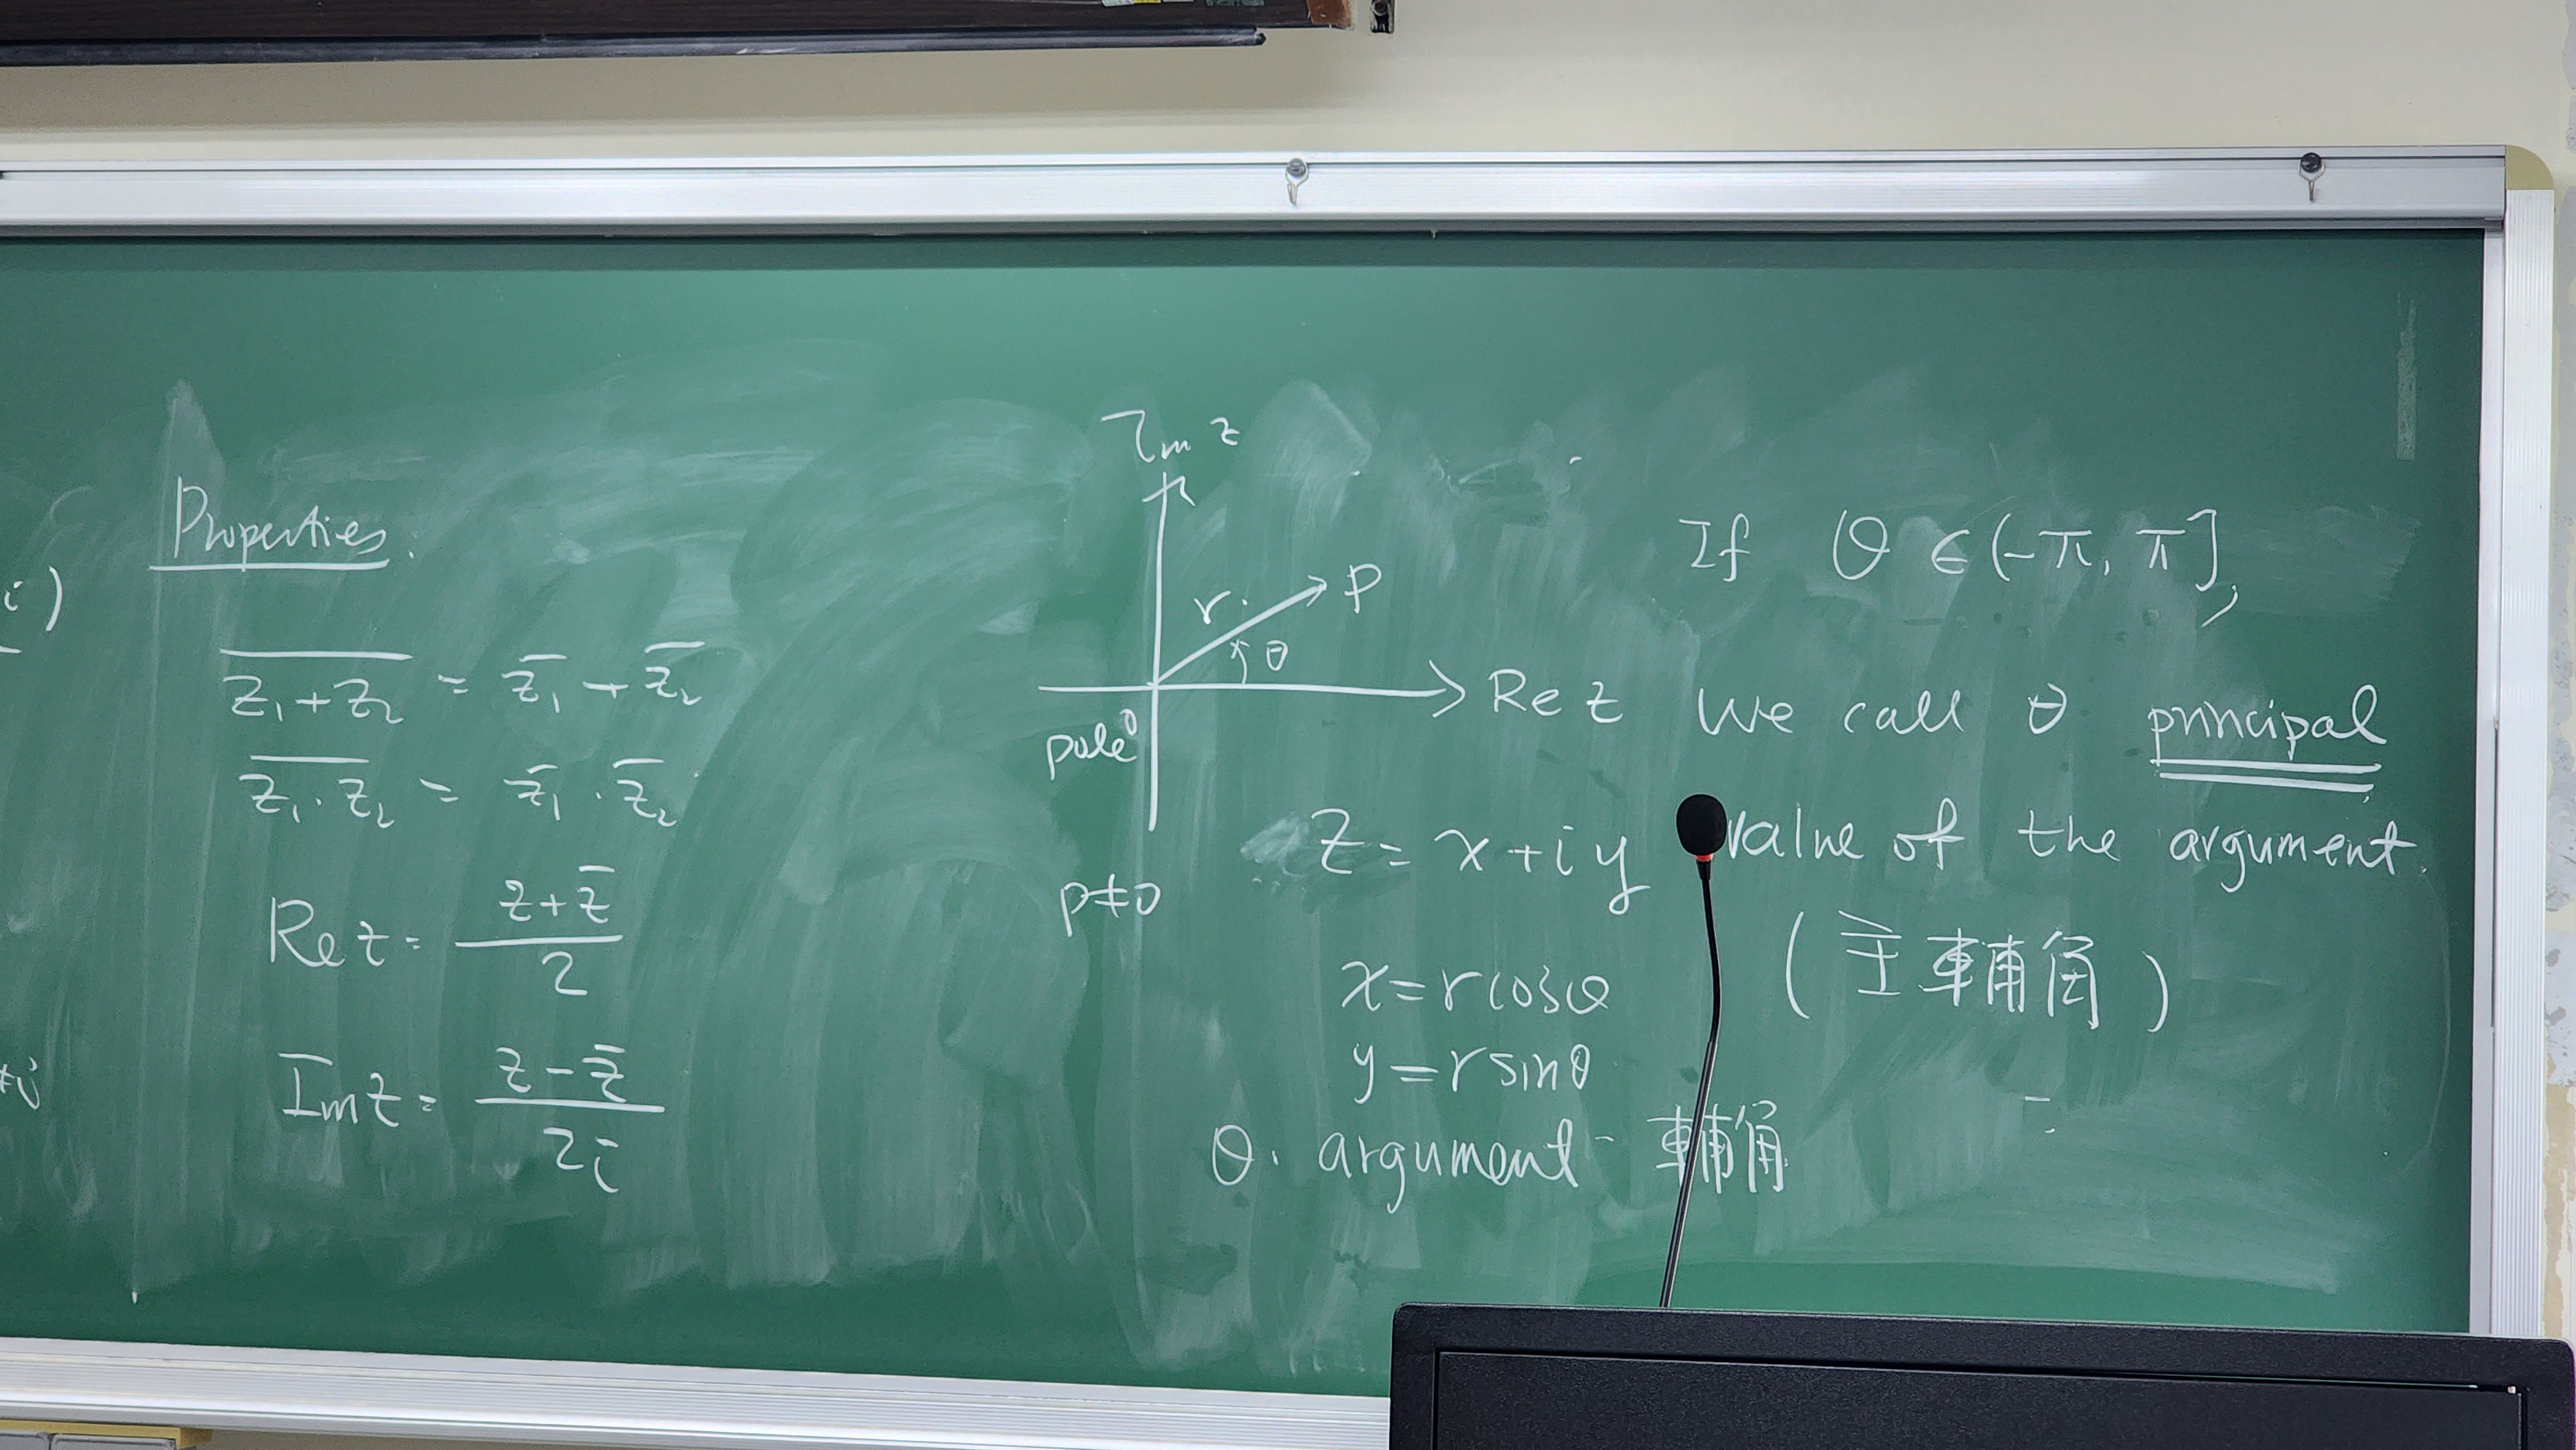 i)
≠0
Properties.
\overline{z₁+z₂} = \overline{z₁} + \overline{z₂}
\overline{z₁·z₂} = \overline{z₁} · \overline{z₂}
Re z = \frac{z+\overline{z}}{2}
Im z = \frac{z-\overline{z}}{2i}
Im z
r. P
θ
Re z
pole 0
z = x+iy
P≠0
x=rcosθ
y=rsinθ
θ. argument - 輔角
If θ ∈ (-π, π],
we call θ principal
value of the argument.
(主輔角)